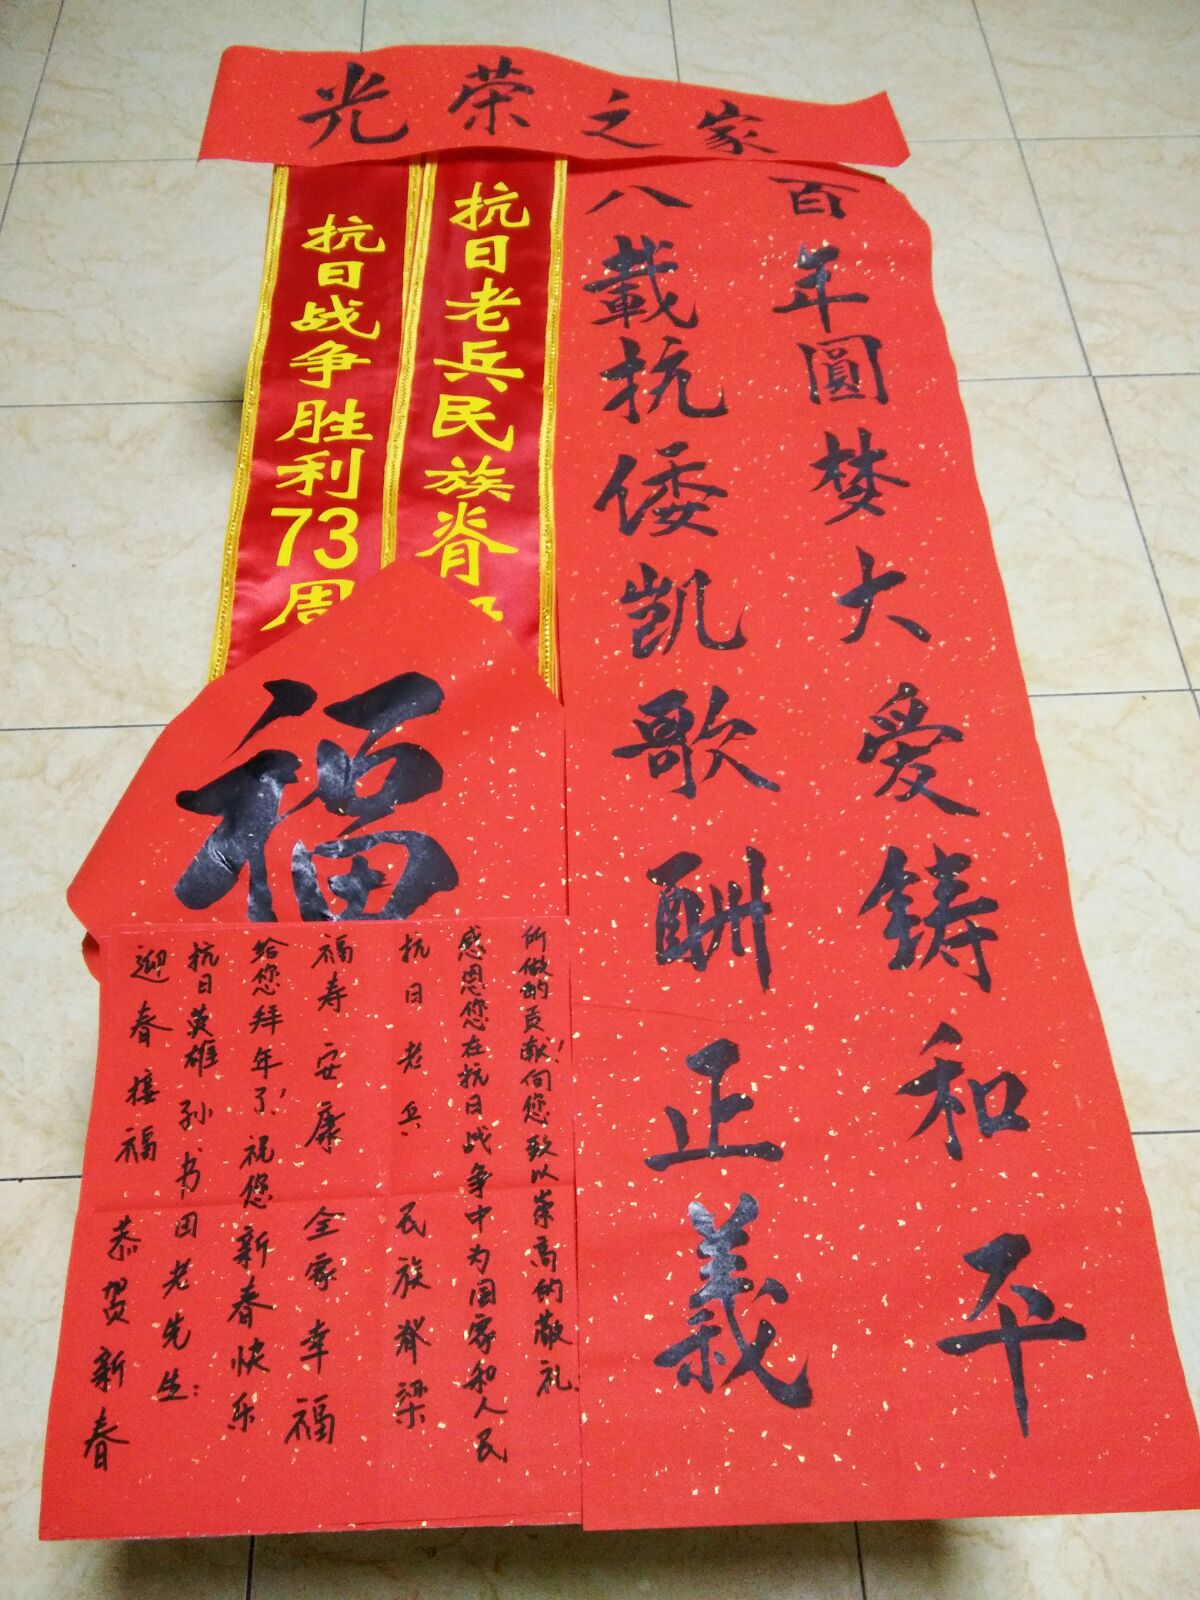 光荣之家
百年圓梦大爱铸和平
八載抗倭凯歌酬正義
抗日老兵民族脊
抗日战争胜利73周
福
迎春接福 恭贺新春
抗日英雄孙书田老先生：
给您拜年了！祝您新春快乐
福寿安康 全家幸福
抗日老兵 民族脊梁
感恩您在抗日战争中为国家和人民
所做的贡献！向您致以崇高的敬礼